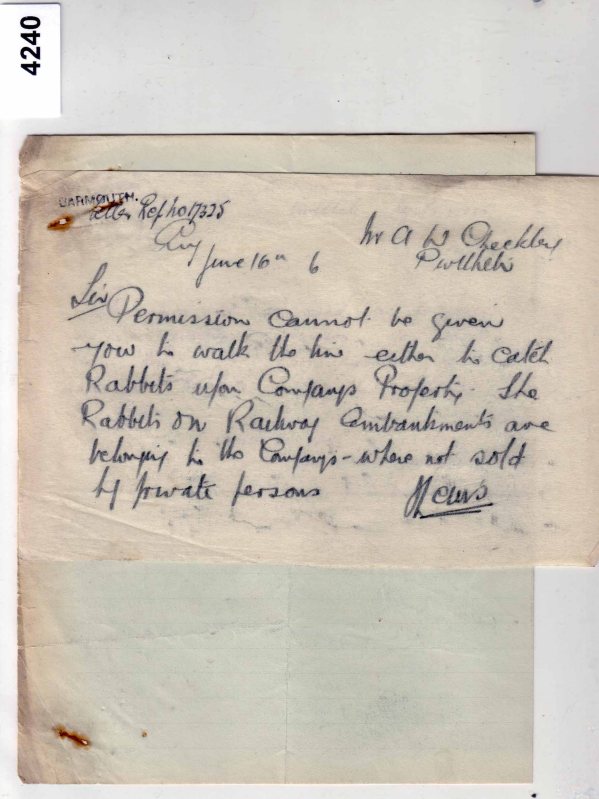 4240
BARMOUTH.
Letter Ref No 17325
June 16th 6
Mr A W Checkley
Pwllheli
Sir
Permission cannot be given
you to walk the line either to catch
Rabbits upon Companys Property. The
Rabbits on Railway Embankments are
belonging to the Companys - where not sold
by private persons
JLewis